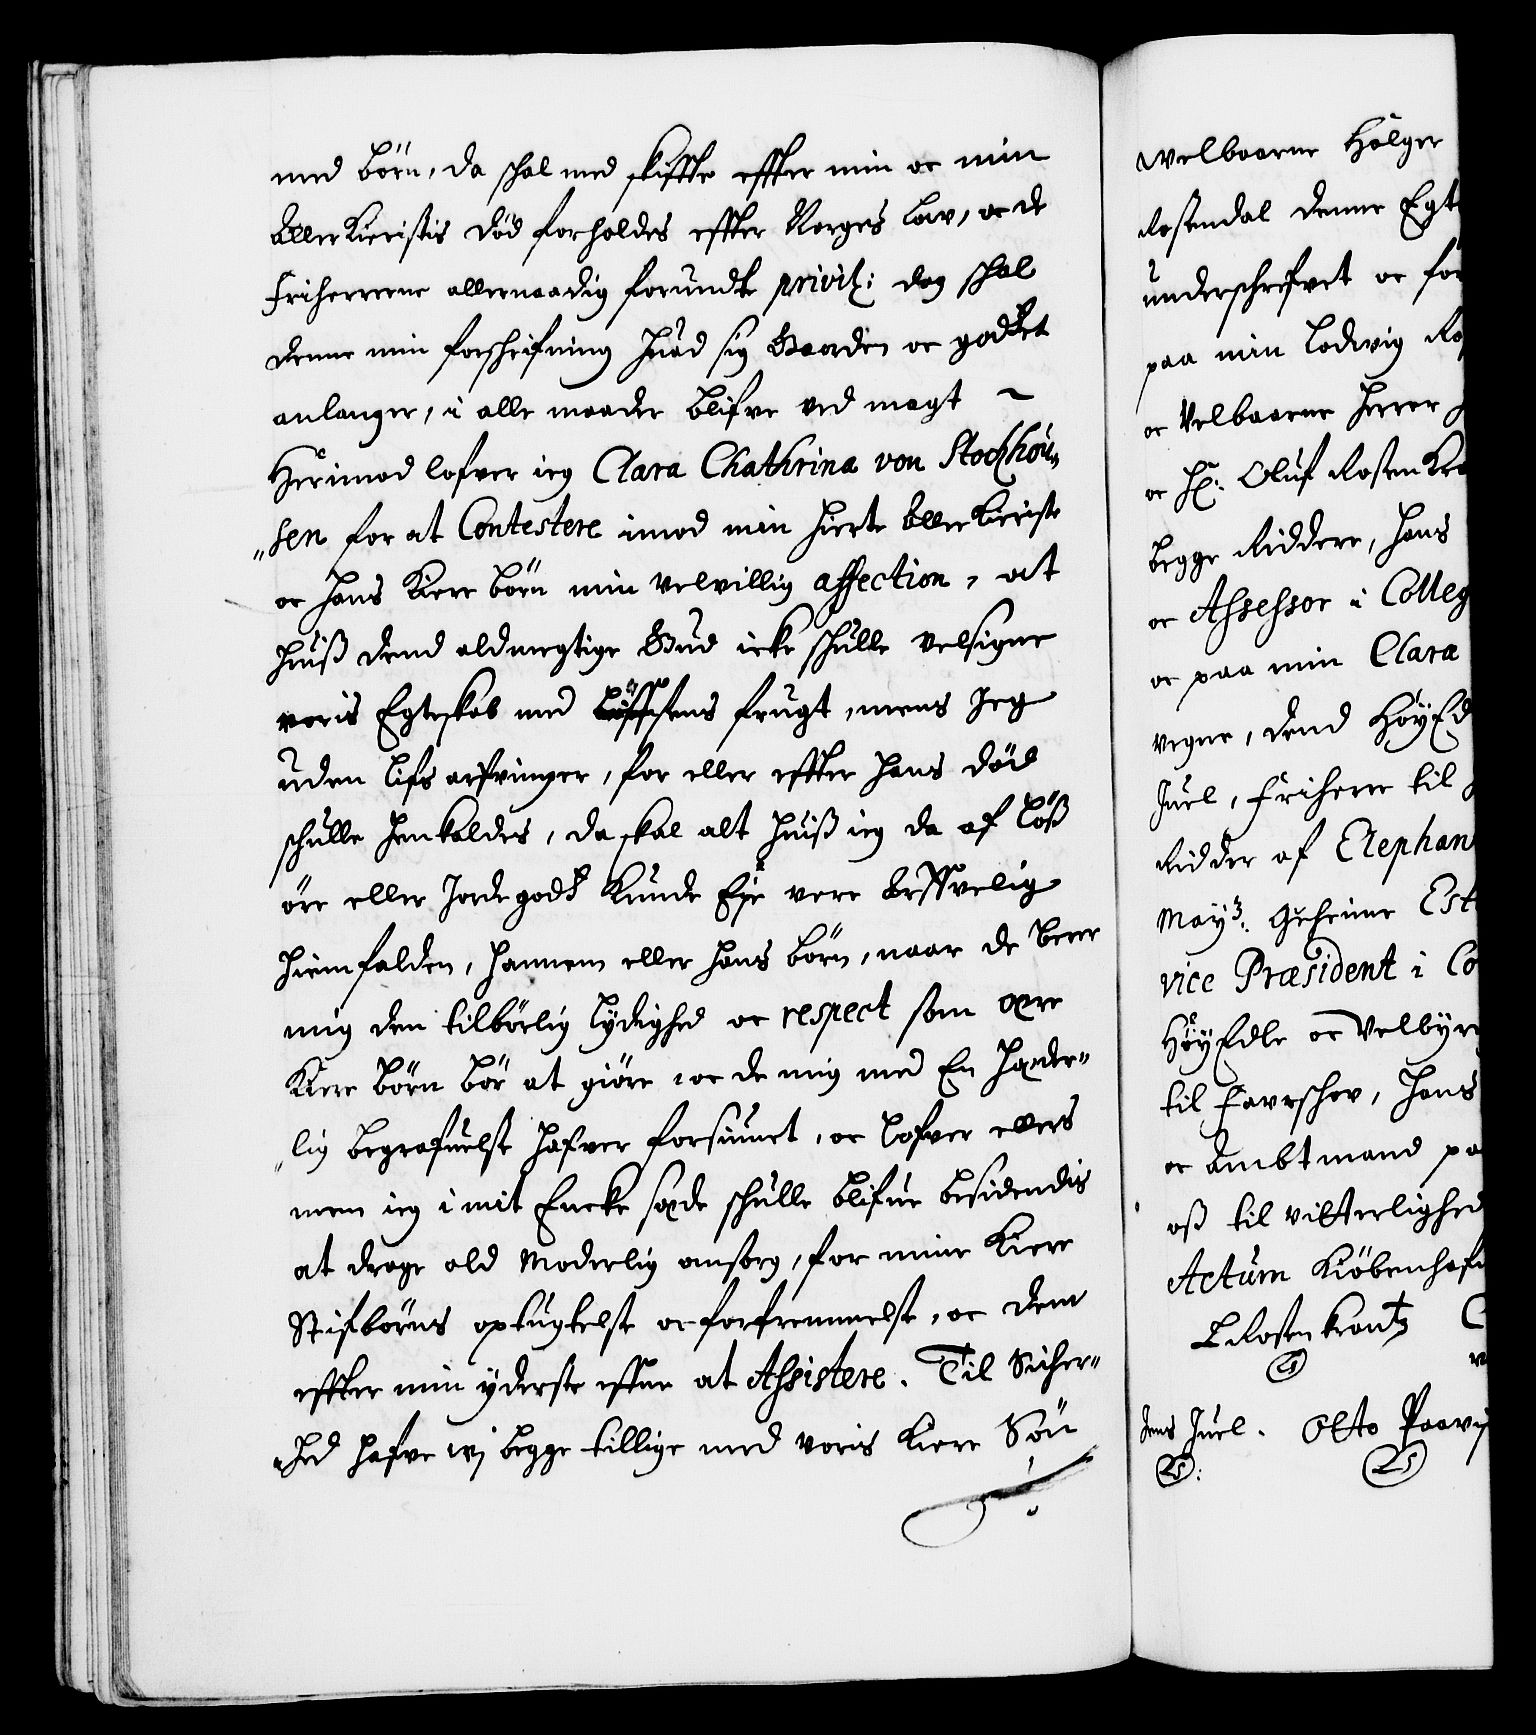 med Börn, da schal med skiffte effter min oc min
AllerKieristis död forholdes effter Norges Low, oc de
Friherrerne allernaadig forundte privil: dog schal
denne min forschrifning huad sig Gaarden oc godset
anlanger, i alle maader blifve ved magt ~
Herimod lofver ieg Clara Chathrina von Stockhou„
„sen for at Contestere imod min hierte Aller Kieriste
oc hans Kiere börn min velvillig affection, at
huiß dend aldmegtige Gud icke schulle velsigne
voris Egteskab med Lifsens frugt, mens Jeg
uden Lifs arfvinger, for eller effter hans död
schulle henkaldes, da skal alt huiß ieg da af Löß
öre eller Jordegods Kunde Eje vere Arffvelig
hiemfalden, hannem eller hans börn, naar de berer
mig den tilbörlig Lydighed oc respect som ære
Kiere Börn bör at giöre, oc de mig med En hæder„
„lig begrafuelse hafver forsiunet, oc Lofver ellers
men ieg i mit Encke sæde schulle blifue besidendis
at drage ald Moderlig omsorg, for mine Kiere
Stifbörns optugtelse oc forfremmelse, oc dem
effter min yderste effne at Assistere. Til Sicher„
„hed hafve wj begge tillige med voris Kiere Sön
Welbaarne Holger
Rosendal denne Egt
underschrifvet oc for
paa min Lodvig Ro
oc Velbaarne Herrer
oc Hr: Oluf RosenKra
begge Riddere, Hans
oc Assessor i Colleg
oc paa min Clara
vegne, dend HöyEd
Juel, Friherre til
Ridder af Elephan
May: Geheime Est
vice Præsident i Co
HöyEdle oc Velbyr
til Faurschov, Hans
oc Ambtmand pa
oß til vitterlighed
Actum Kiöbenhafn
LRosenkrantz C
Jens Juel. Otto Powi
LS: LS